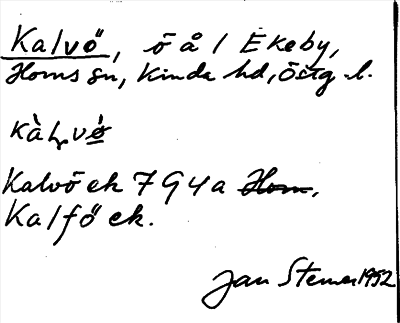 Kalvö, ö å / Ekeby,
Horns sn, Kinda hd, Östg. l.
Kalvö ek 794a Horn,
Kalfö ek.
Jan 1952